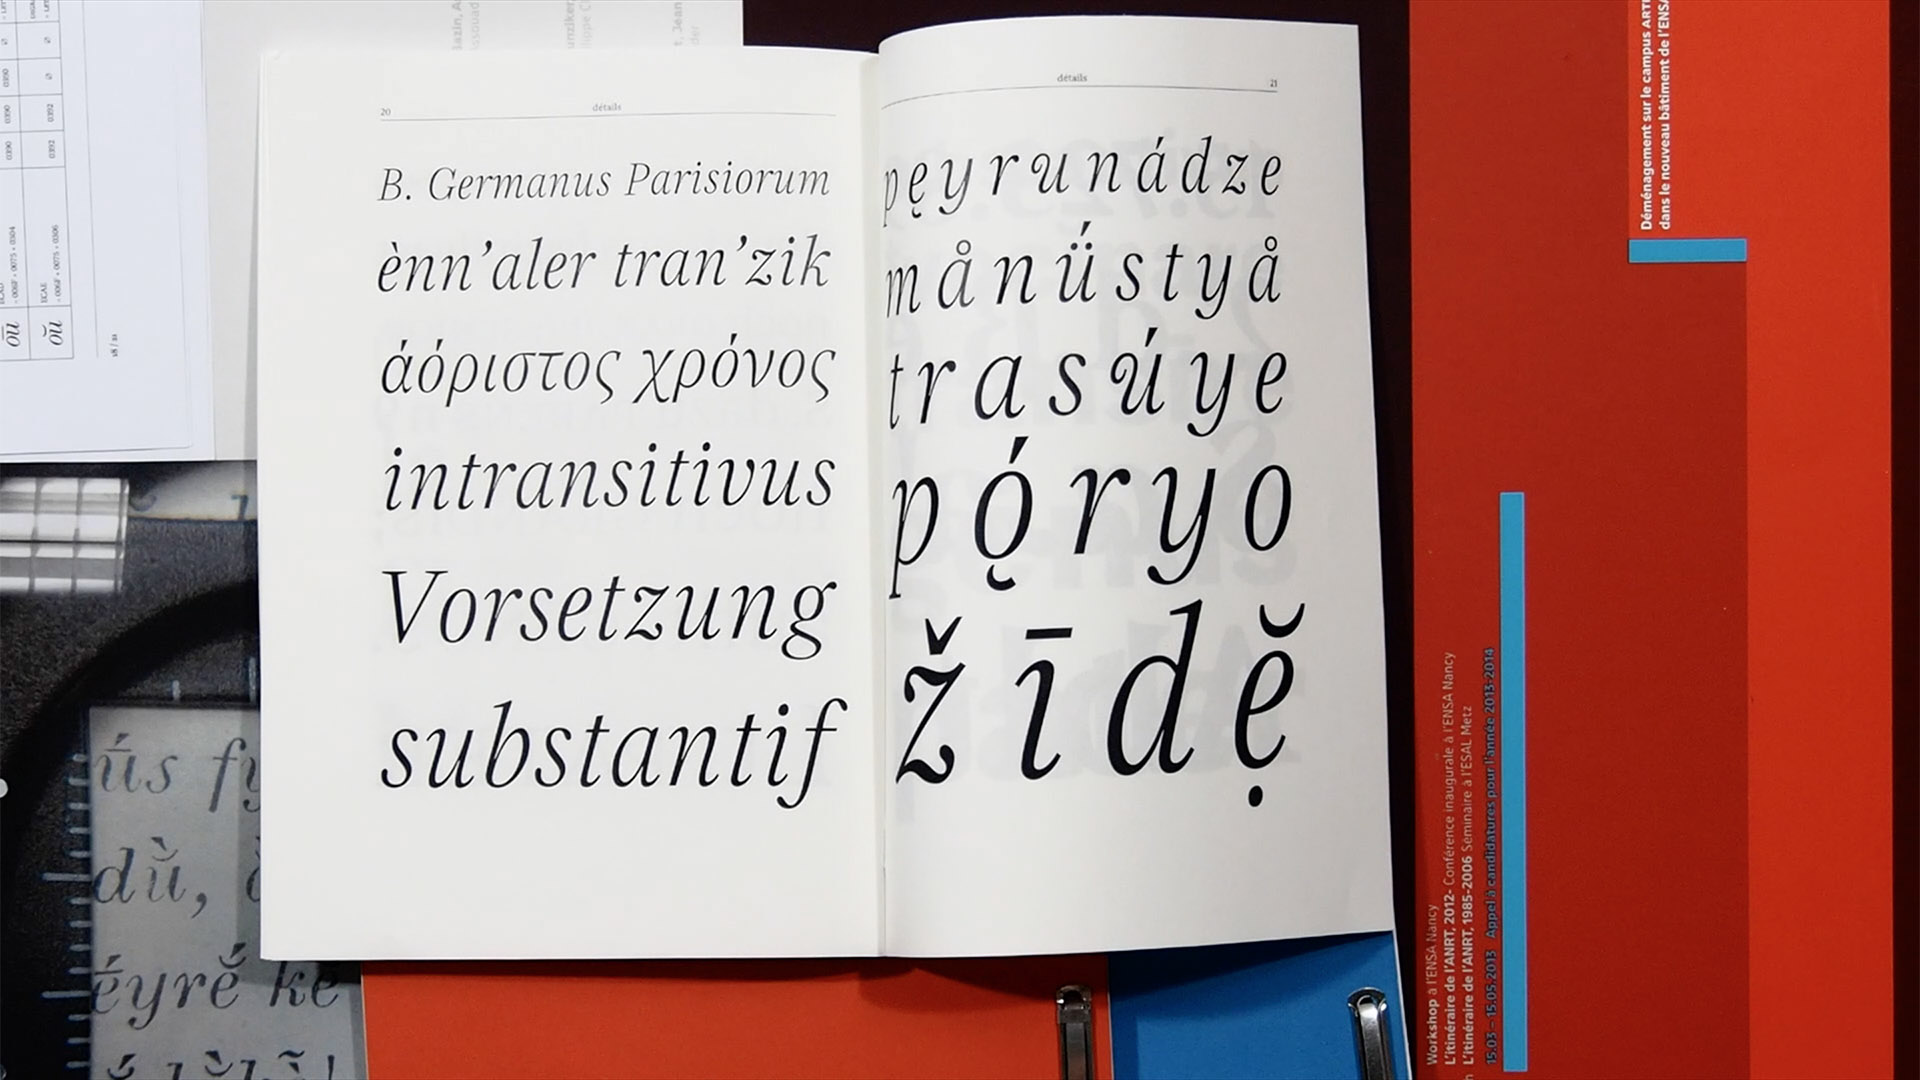 20
détails
B. Germanus Parisiorum
ènn’aler tran’zik
άόριστος χρόνος
intransitivus
Vorsetzung
substantif
détails
21
pęyrunádze
månǘstyå
trasúye
pǫ́ryo
žīdẹ̆
Déménagement sur le campus ARTE
dans le nouveau bâtiment de l'ENSA
Workshop à l'ENSA Nancy
L'itinéraire de l'ANRT, 2012- Conférence inaugurale à l'ENSA Nancy
L'itinéraire de l'ANRT, 1985-2006 Seminaire à l'ESAL Metz
15.03 – 15.05.2013 Appel à candidatures pour l'année 2013-2014
0390
0390
0392
0392
= 006F + 0075 + 0304
ECAE
= 006F + 0075 + 0306
18 / 21